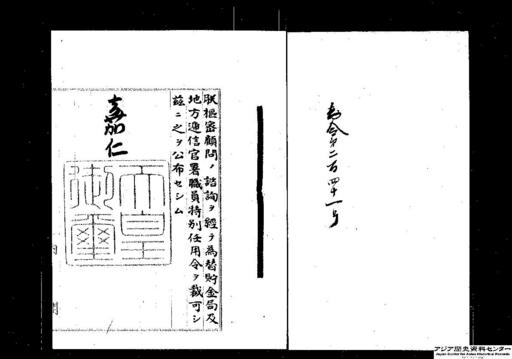 勅令第二百四十一号
朕枢密顧問ノ諮詢ヲ経テ為替貯金局及
地方逓信官署職員特別任用令ヲ裁可シ
茲ニ之ヲ公布セシム
嘉仁
天皇
御璽
アジア歴史資料センター
Japan Center for Asian Historical Records